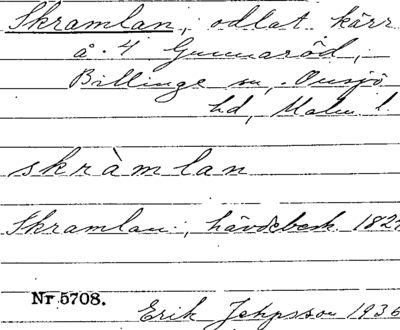 Skramlan, odlat kärr
å. 4 Gunnaröd,
Billinge sn, Onsjö
hd, Malm. l.
skràmlan
Skramlan, hävdebesk. 182
Nr 5708.
Erik Jeppsson 1936